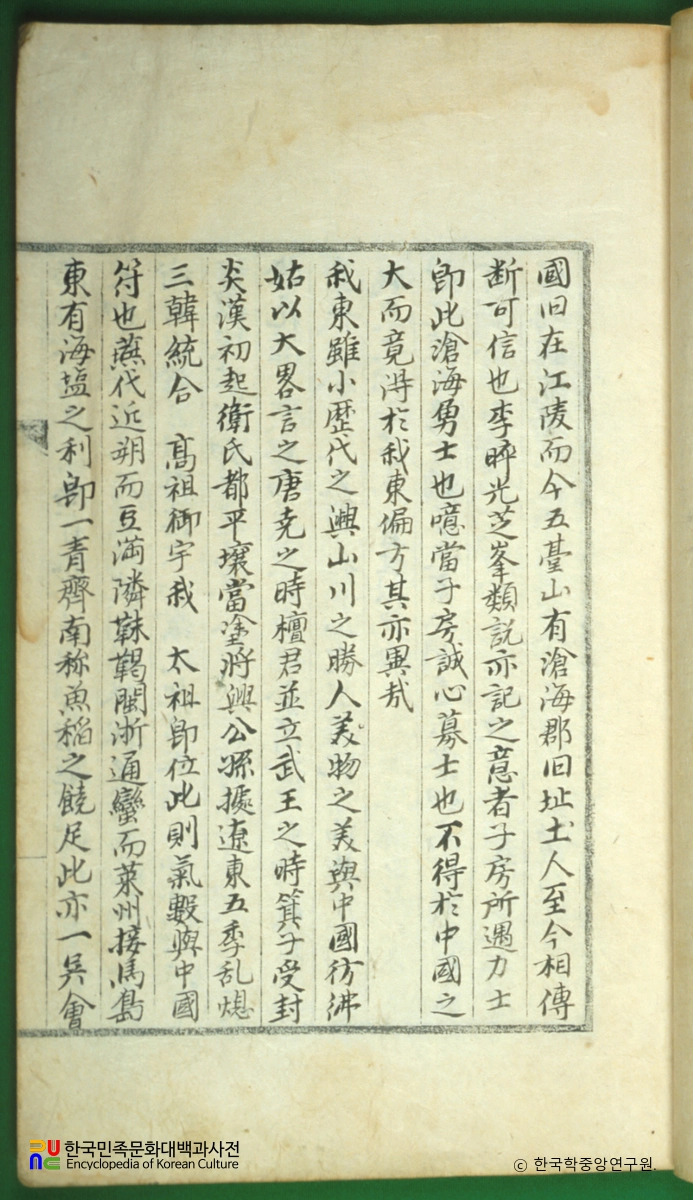 國旧在江陵而今五臺山有滄海郡旧址土人至今相傳
断可信也李晬光芝峯類說亦記之意者子房所遇力士
卽此滄海勇士也噫當子房誠心募士也不得於中國之
大而竟淂於我東偏方其亦異哉
我東雖小歷代之興山川之勝人美物之美與中國彷彿
姑以大畧言之唐尭之時檀君並立武王之時箕子受封
炎漢初起衛氏都平壤當塗將興公孫據遼東五季乱熄
三韓統合 高祖御宇我 太祖卽位此則氣數與中國
符也燕代近朔而豆滿隣靺鞨閩浙通蠻而萊州接馬島
東有海塩之利卽一青齊南称魚稻之饒足此亦一吳會
한국민족문화대백과사전
Encyclopedia of Korean Culture
© 한국학중앙연구원.